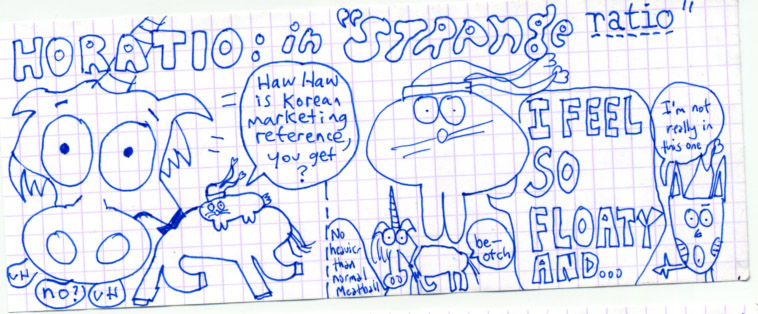 HORATIO: in "STRANGE ratio"
Haw Haw
is Korean
marketing
reference,
you get
?
UH
no?
UH
No
heavier
than
normal
Meatball
be-
otch
I FEEL
SO
FLOATY
AND...
I'm not
really in
this one